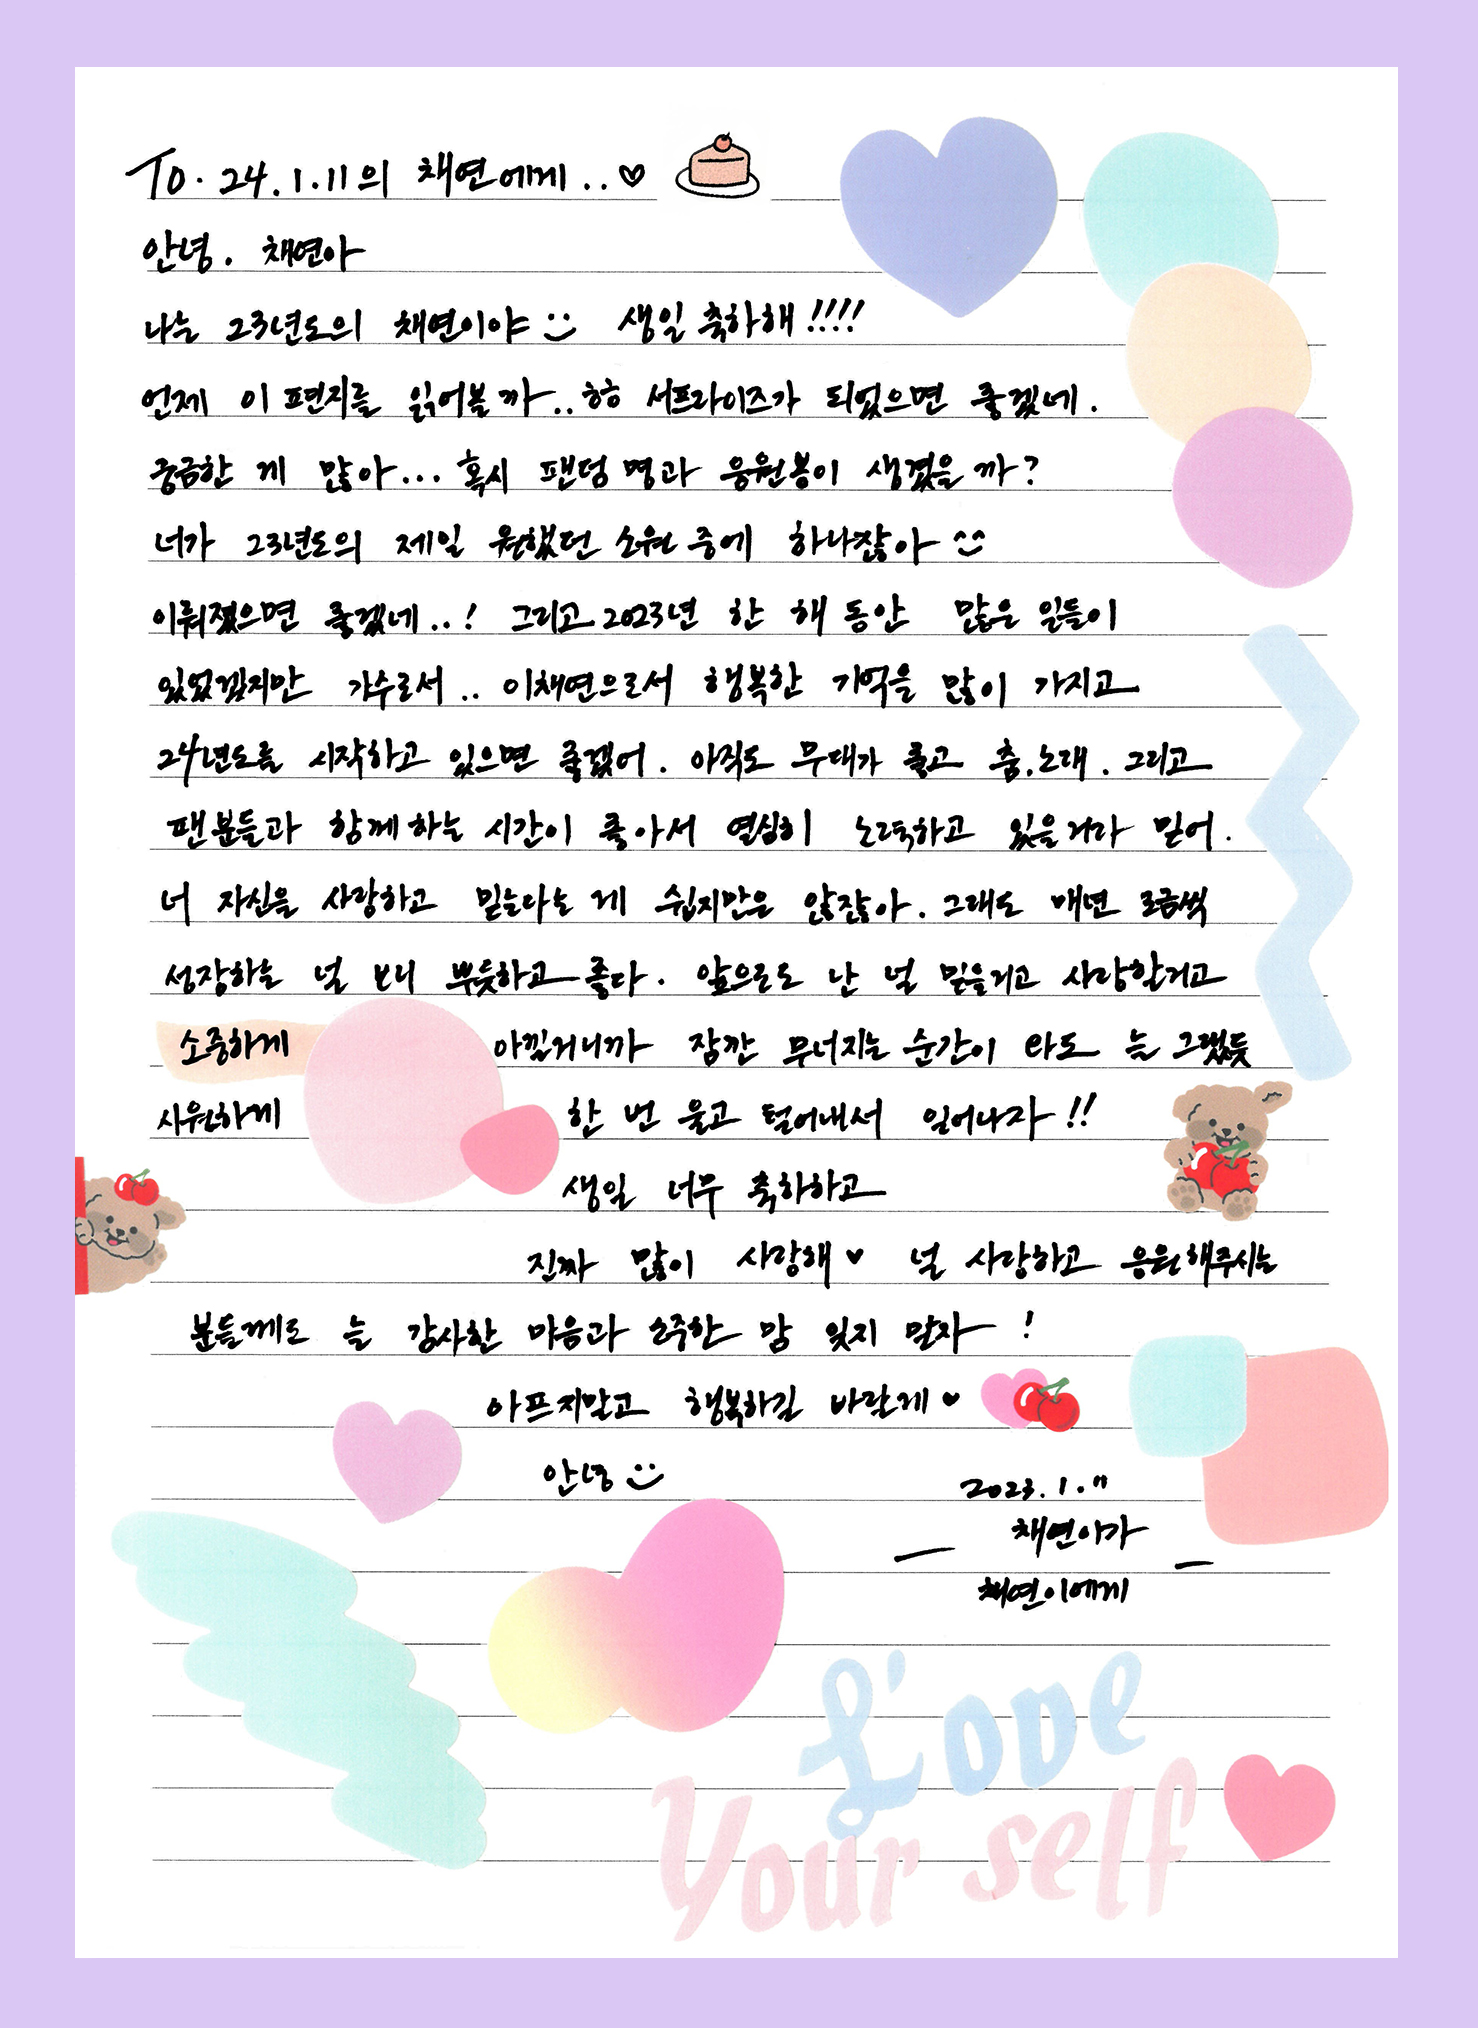 To. 24.1.11의 채연에게..♡
안녕. 채연아
나는 23년도의 채연이야 :) 생일 축하해!!!!
언제 이 편지를 읽어볼까..ㅎㅎ 서프라이즈가 되었으면 좋겠네.
궁금한 게 많아... 혹시 팬덤명과 응원봉이 생겼을까?
너가 23년도의 제일 원했던 소원 중에 하나잖아 ^^
이뤄졌으면 좋겠네..! 그리고 2023년 한 해 동안 많은 일들이
있었겠지만 가수로서.. 이채연으로서 행복한 기억을 많이 가지고
24년도를 시작하고 있으면 좋겠어. 아직도 무대가 좋고 춤.노래. 그리고
팬분들과 함께하는 시간이 좋아서 열심히 노력하고 있을거라 믿어.
너 자신을 사랑하고 믿는다는 게 쉽지만은 않잖아. 그래도 매년 조금씩
성장하는 널 보니 뿌듯하고 좋다. 앞으로도 난 널 믿을거고 사랑할거고
소중하게 아낄거니까 잠깐 무너지는 순간이 와도 늘 그랬듯
시원하게 한 번 울고 털어내서 일어나자!!
생일 너무 축하하고
진짜 많이 사랑해♥ 널 사랑하고 응원해주시는
분들께도 늘 감사한 마음과 소중한 맘 잊지 말자!
아프지말고 행복하길 바랄게♥
안녕 :)
2023.1.11
채연이가
채연이에게
Love
Your self